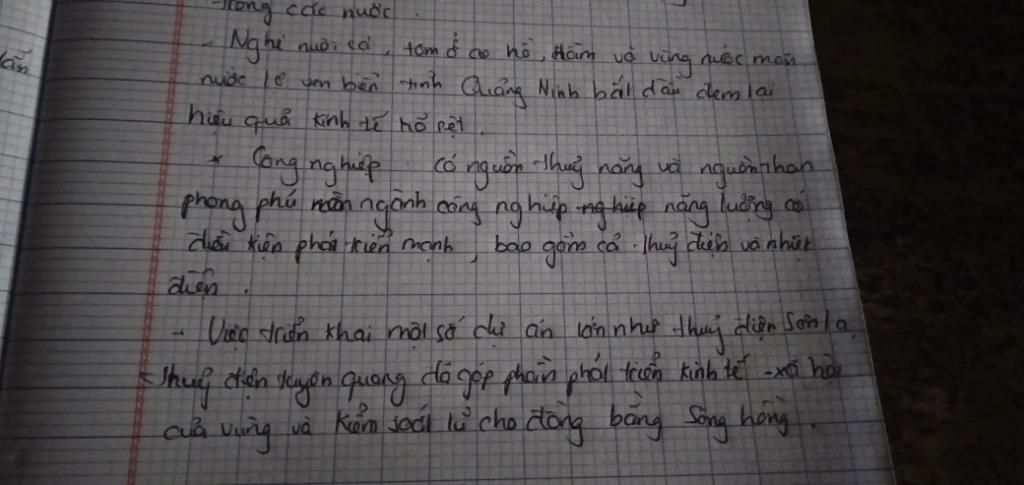 trong các nước.
- Nghề nuôi cá, tom ở ao hồ, đầm và vùng nước mặn
nước lợ ven biển tỉnh Quảng Ninh bắt đầu đem lại
hiệu quả kinh tế hõ rệt.
* Công nghiệp có nguồn thuỷ năng và nguồn than
phong phú nên ngành công nghiệp nghiệp năng lượng có
điều kiện phát triển mạnh, bao gồm cả thuỷ điện và nhiệt
điện.
- Việc triển khai một số dự án lớn như thuỷ điện Sơn la
thuỷ điện tuyên quang đã góp phần phát triển kinh tế -xã hội
của vùng và kiểm soát lũ cho đồng bằng Sông hồng.